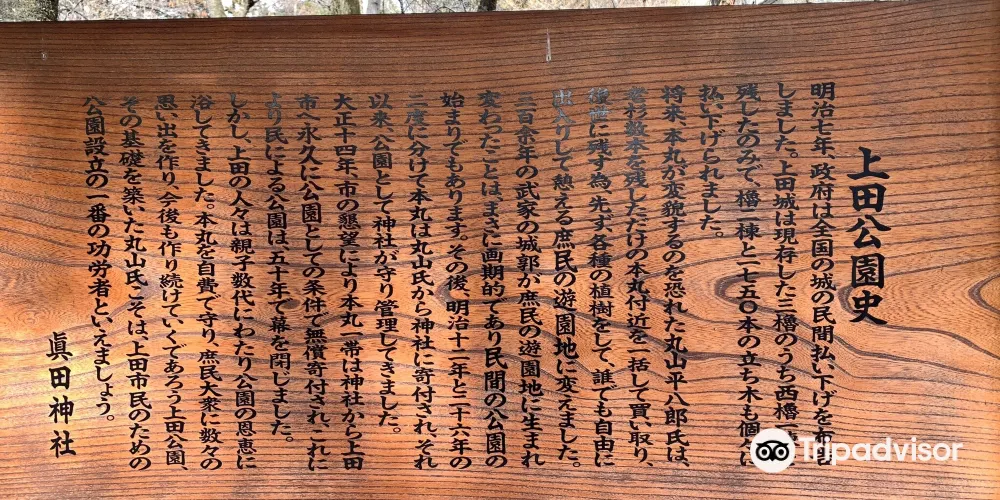 上田公園史
明治七年、政府は全国の城の民間払い下げを布告
しました。上田城は現存した三櫓のうち西櫓一
残したのみで、櫓一棟と一七五〇本の立ち木も個人に
払い下げられました。
将来、本丸が変貌するのを恐れた丸山平八郎氏は、
老杉数本を残しただけの本丸付近を一括して買い取り、
後世に残す為、先ず、各種の植樹をして、誰でも自由に
出入りして憩える庶民の遊園地に変えました。
三百余年の武家の城郭が庶民の遊園地に生まれ
変わったことは、まさに画期的であり民間の公園の
始まりでもあります。その後、明治十二年と二十六年の
二度に分けて本丸は丸山氏から神社に寄付され、それ
以来、公園として神社が守り管理してきました。
大正十四年、市の懇望により本丸一帯は神社から上田
市へ永久に公園としての条件で無償寄付され、これに
より民による公園は、五十年で幕を閉じました。
しかし、上田の人々は親子数代にわたり公園の恩恵に
浴してきました。本丸を自費で守り、庶民大衆に数々の
思い出を作り、今後も作り続けていくであろう上田公園、
その基礎を築いた丸山氏こそは、上田市民のための
公園設立の一番の功労者といえましょう。
眞田神社
Tripadvisor